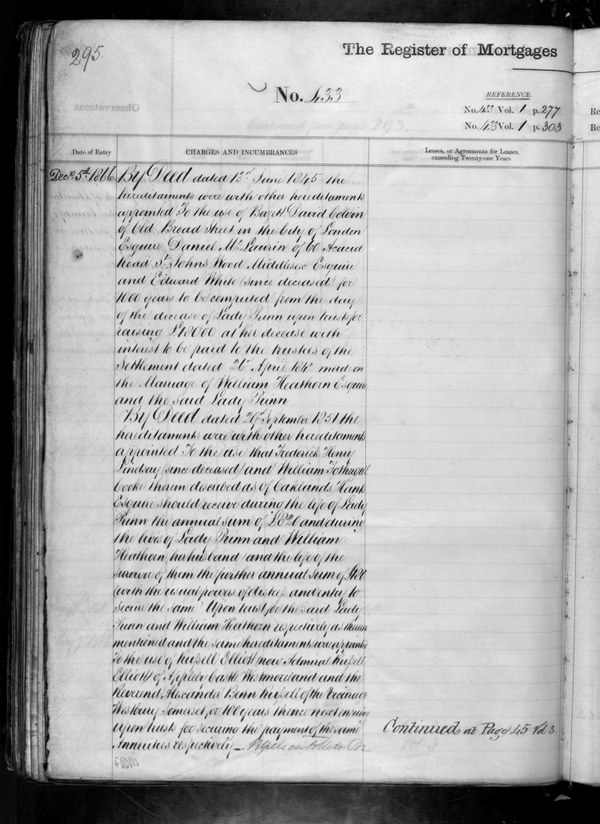 295
The Register of Mortgages
No. 433
REFERENCE
No. 433 Vol. 1 p. 277
No. 433 Vol. 1 p. 303
Date of Entry
CHARGES AND INCUMBRANCES
Leases, or Agreements for Leases, exceeding Twenty-one Years
Decr. 5th. 1866
By Deed dated 13th June 1845 the
hereditaments were with other hereditaments
appointed To the use of David Colvin
of Old Broad Street in the City of London
Esquire Daniel McLaurin of 60 Acacia
Road St. Johns Wood Middlesex Esquire
and Edward White (since deceased) for
1000 years to be computed from the day
of the decease of Lady Prinn upon trusts for
raising £12000 at her decease with
interest to be paid to the trustees of the
Settlement dated April made on
the Marriage of William Heathorn Esquire
and the said Lady Prinn
By Deed dated 29th September 1851 the
hereditaments were with other hereditaments
appointed To the use that Frederick Henry
Lindsay (since deceased) and William
Cooke therein described as of Oaklands Hants
Esquire should receive during the life of Lady
Prinn the annual sum of and during
the lives of Lady Prinn and William
Heathorn her husband and the life of the
survivor of them the further annual sum of
(with the usual powers of distress and entry to
secure the same) Upon trust for the said Lady
Prinn and William Heathorn respectively as therein
mentioned and the same hereditaments were appointed
To the use of Russell Elliott now Admiral Russell
Elliott of Appleby Castle Westmoreland and the
Reverend Alexander Benn Russell of the Vicarage
Westbury Somerset for 100 years thence next ensuing
Upon trusts for securing the payment of the same
Annuities respectively
Continued at Page 45 Vol 3.